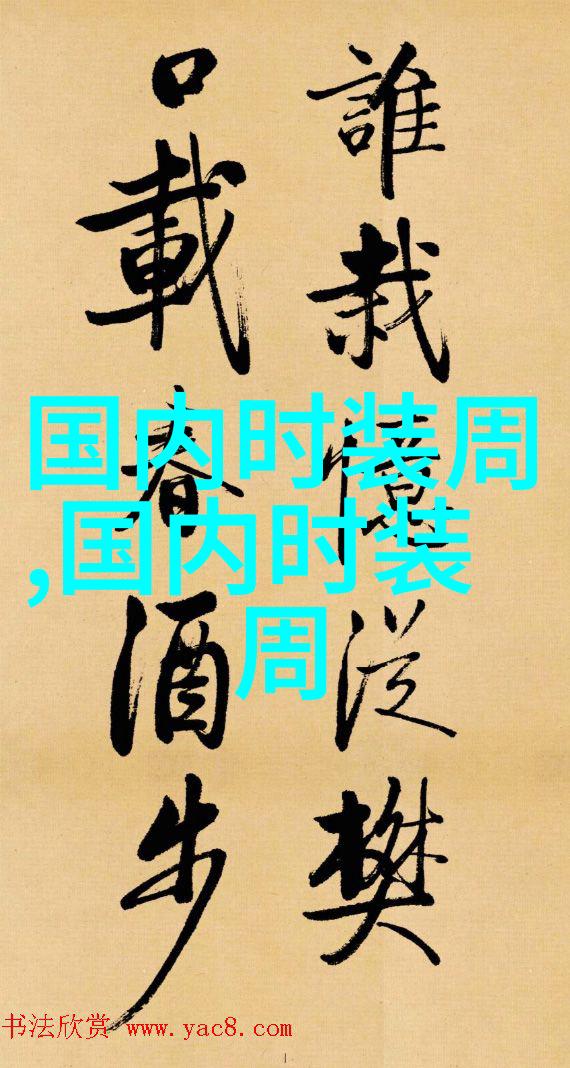 誰栽憶從樊
口載春酒步
国内时装周
,国内时装
周
书法欣赏 www.yac8.com